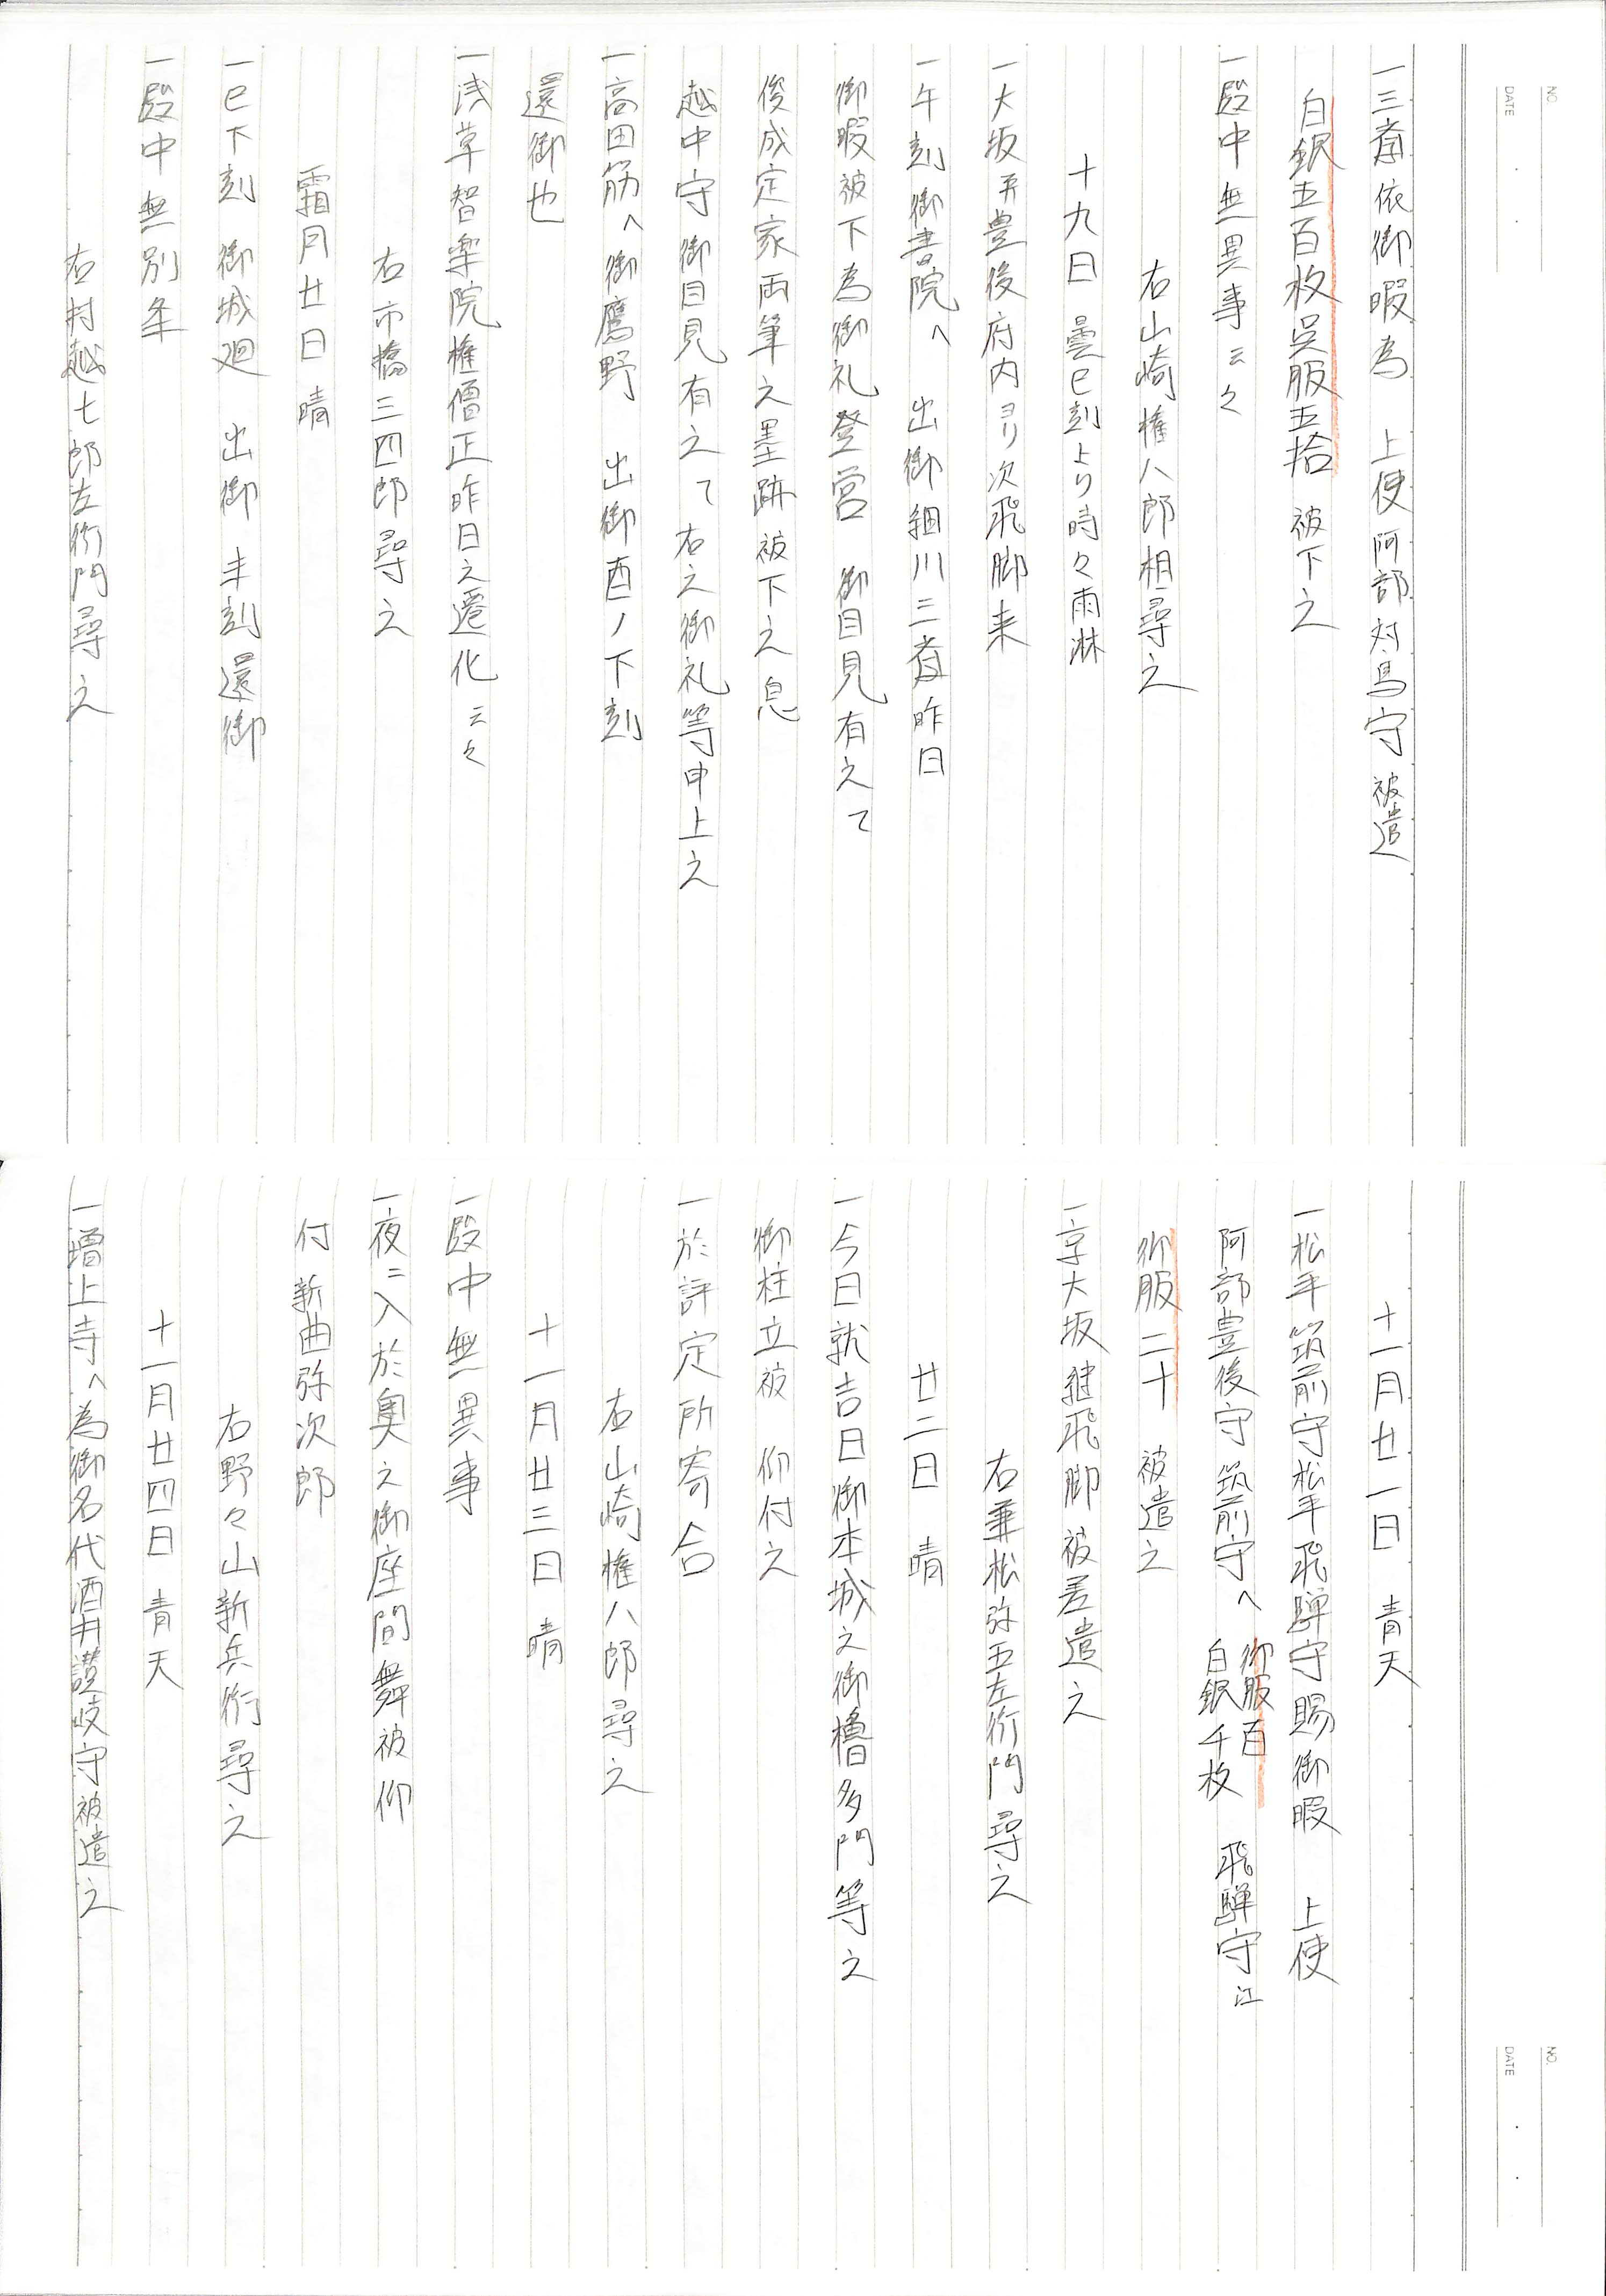 NO.
DATE
一三斎依御暇為 上使阿部対馬守被遣
白銀五百枚呉服五拾 被下之
一殿中無異事云々
右山崎権八郎相尋之
十九日 曇巳刻より時々雨淋
一大坂并豊後府内ヨリ次飛脚来
一午刻御書院へ 出御細川三斎昨日
御暇被下為御礼登営 御目見有之て
俊成定家両筆之墨跡被下之息
越中守御目見有之て右之御礼等申上之
一高田筋へ御鷹野 出御酉ノ下刻
還御也
一浅草智楽院権僧正昨日之遷化云々
右市橋三四郎尋之
霜月廿日 晴
一巳下刻 御城廻 出御 未刻還御
一殿中無別条
右村越七郎左衛門尋之
NO.
DATE
十一月廿一日 青天
一松平筑前守松平飛騨守賜御暇 上使
阿部豊後守筑前守へ 御服百 白銀千枚 飛騨守江
御服二十 被遣之
一京大坂継飛脚被差遣之
右兼松弥五左衛門尋之
廿二日 晴
一今日就吉日御本城之御櫓多門等之
御柱立被 仰付之
一於評定所寄合
右山崎権八郎尋之
十一月廿三日 晴
一殿中無異事
一夜ニ入於奥之御座間舞被仰
付 新曲弥次郎
右野々山新兵衛尋之
十一月廿四日 青天
一増上寺へ為御名代酒井讃岐守被遣之